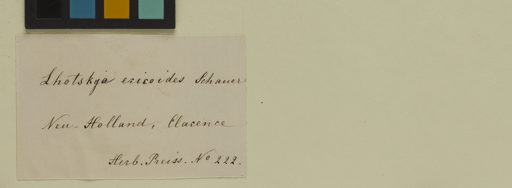 Lhotskya ericoides Schauer
Neu-Holland, Clarence
Herb. Preiss. No 222.